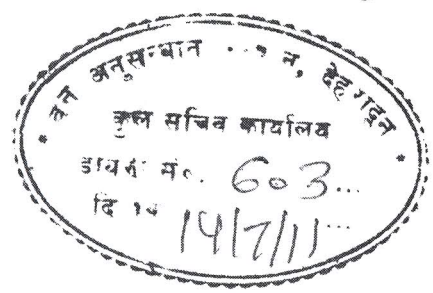 वन अनुसन्धान न, देहरादून
कुल सचिव कार्यालय
डायरी सं. 603...
14/7/11